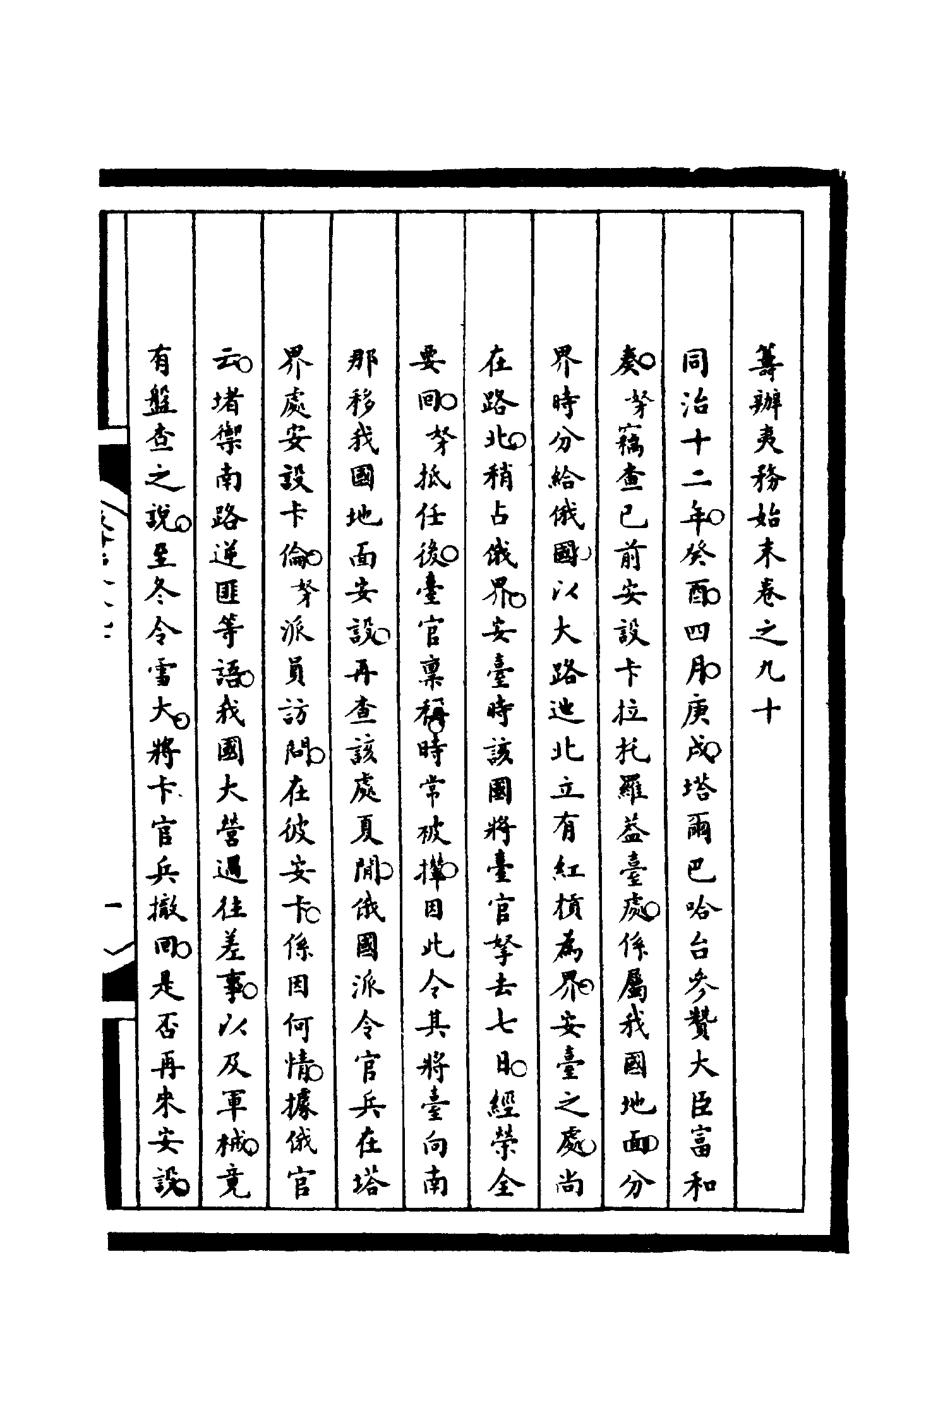 籌辦夷務始末卷之九十
同治十二年。癸酉。四月。庚戌。塔爾巴哈台參贊大臣富和
奏。孥竊查已前安設卡拉托羅蓋臺處。係屬我國地面。分
界時分給俄國。以大路迤北立有紅槓為界。安臺之處。尚
在路北。稍占俄界。安臺時該國將臺官拏去七日。經榮全
要回。孥抵任後。臺官稟稱。時常被攆。因此令其將臺向南
那移我國地面安設。再查該處夏間。俄國派令官兵在塔
界處安設卡倫。孥派員訪問。在彼安卡。係因何情。據俄官
云。堵禦南路逆匪等語。我國大營過往差事。以及軍械。竟
有盤查之說。至冬令雪大。將卡官兵撤回。是否再來安設。